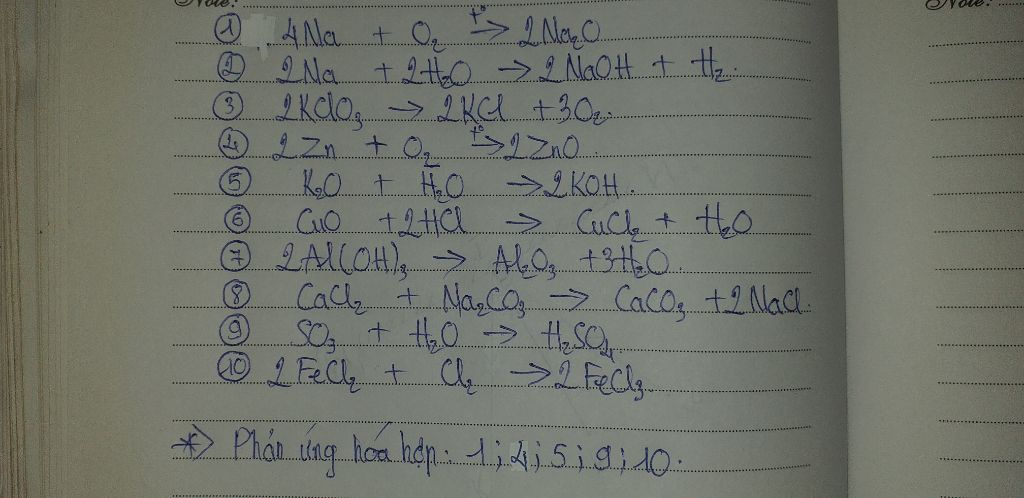 Note: Note:
① 4Na + O₂ t°→ 2Na₂O
② 2Na + 2H₂O → 2NaOH + H₂.
③ 2KClO₃ → 2KCl + 3O₂.
④ 2Zn + O₂ t°→ 2ZnO
⑤ K₂O + H₂O → 2KOH.
⑥ CuO + 2HCl → CuCl₂ + H₂O
⑦ 2Al(OH)₃ → Al₂O₃ + 3H₂O.
⑧ CaCl₂ + Na₂CO₃ → CaCO₃ + 2NaCl.
⑨ SO₃ + H₂O → H₂SO₄
⑩ 2FeCl₂ + Cl₂ → 2FeCl₃.
*> Phản ứng hóa hợp: 1; 4; 5; 9; 10.